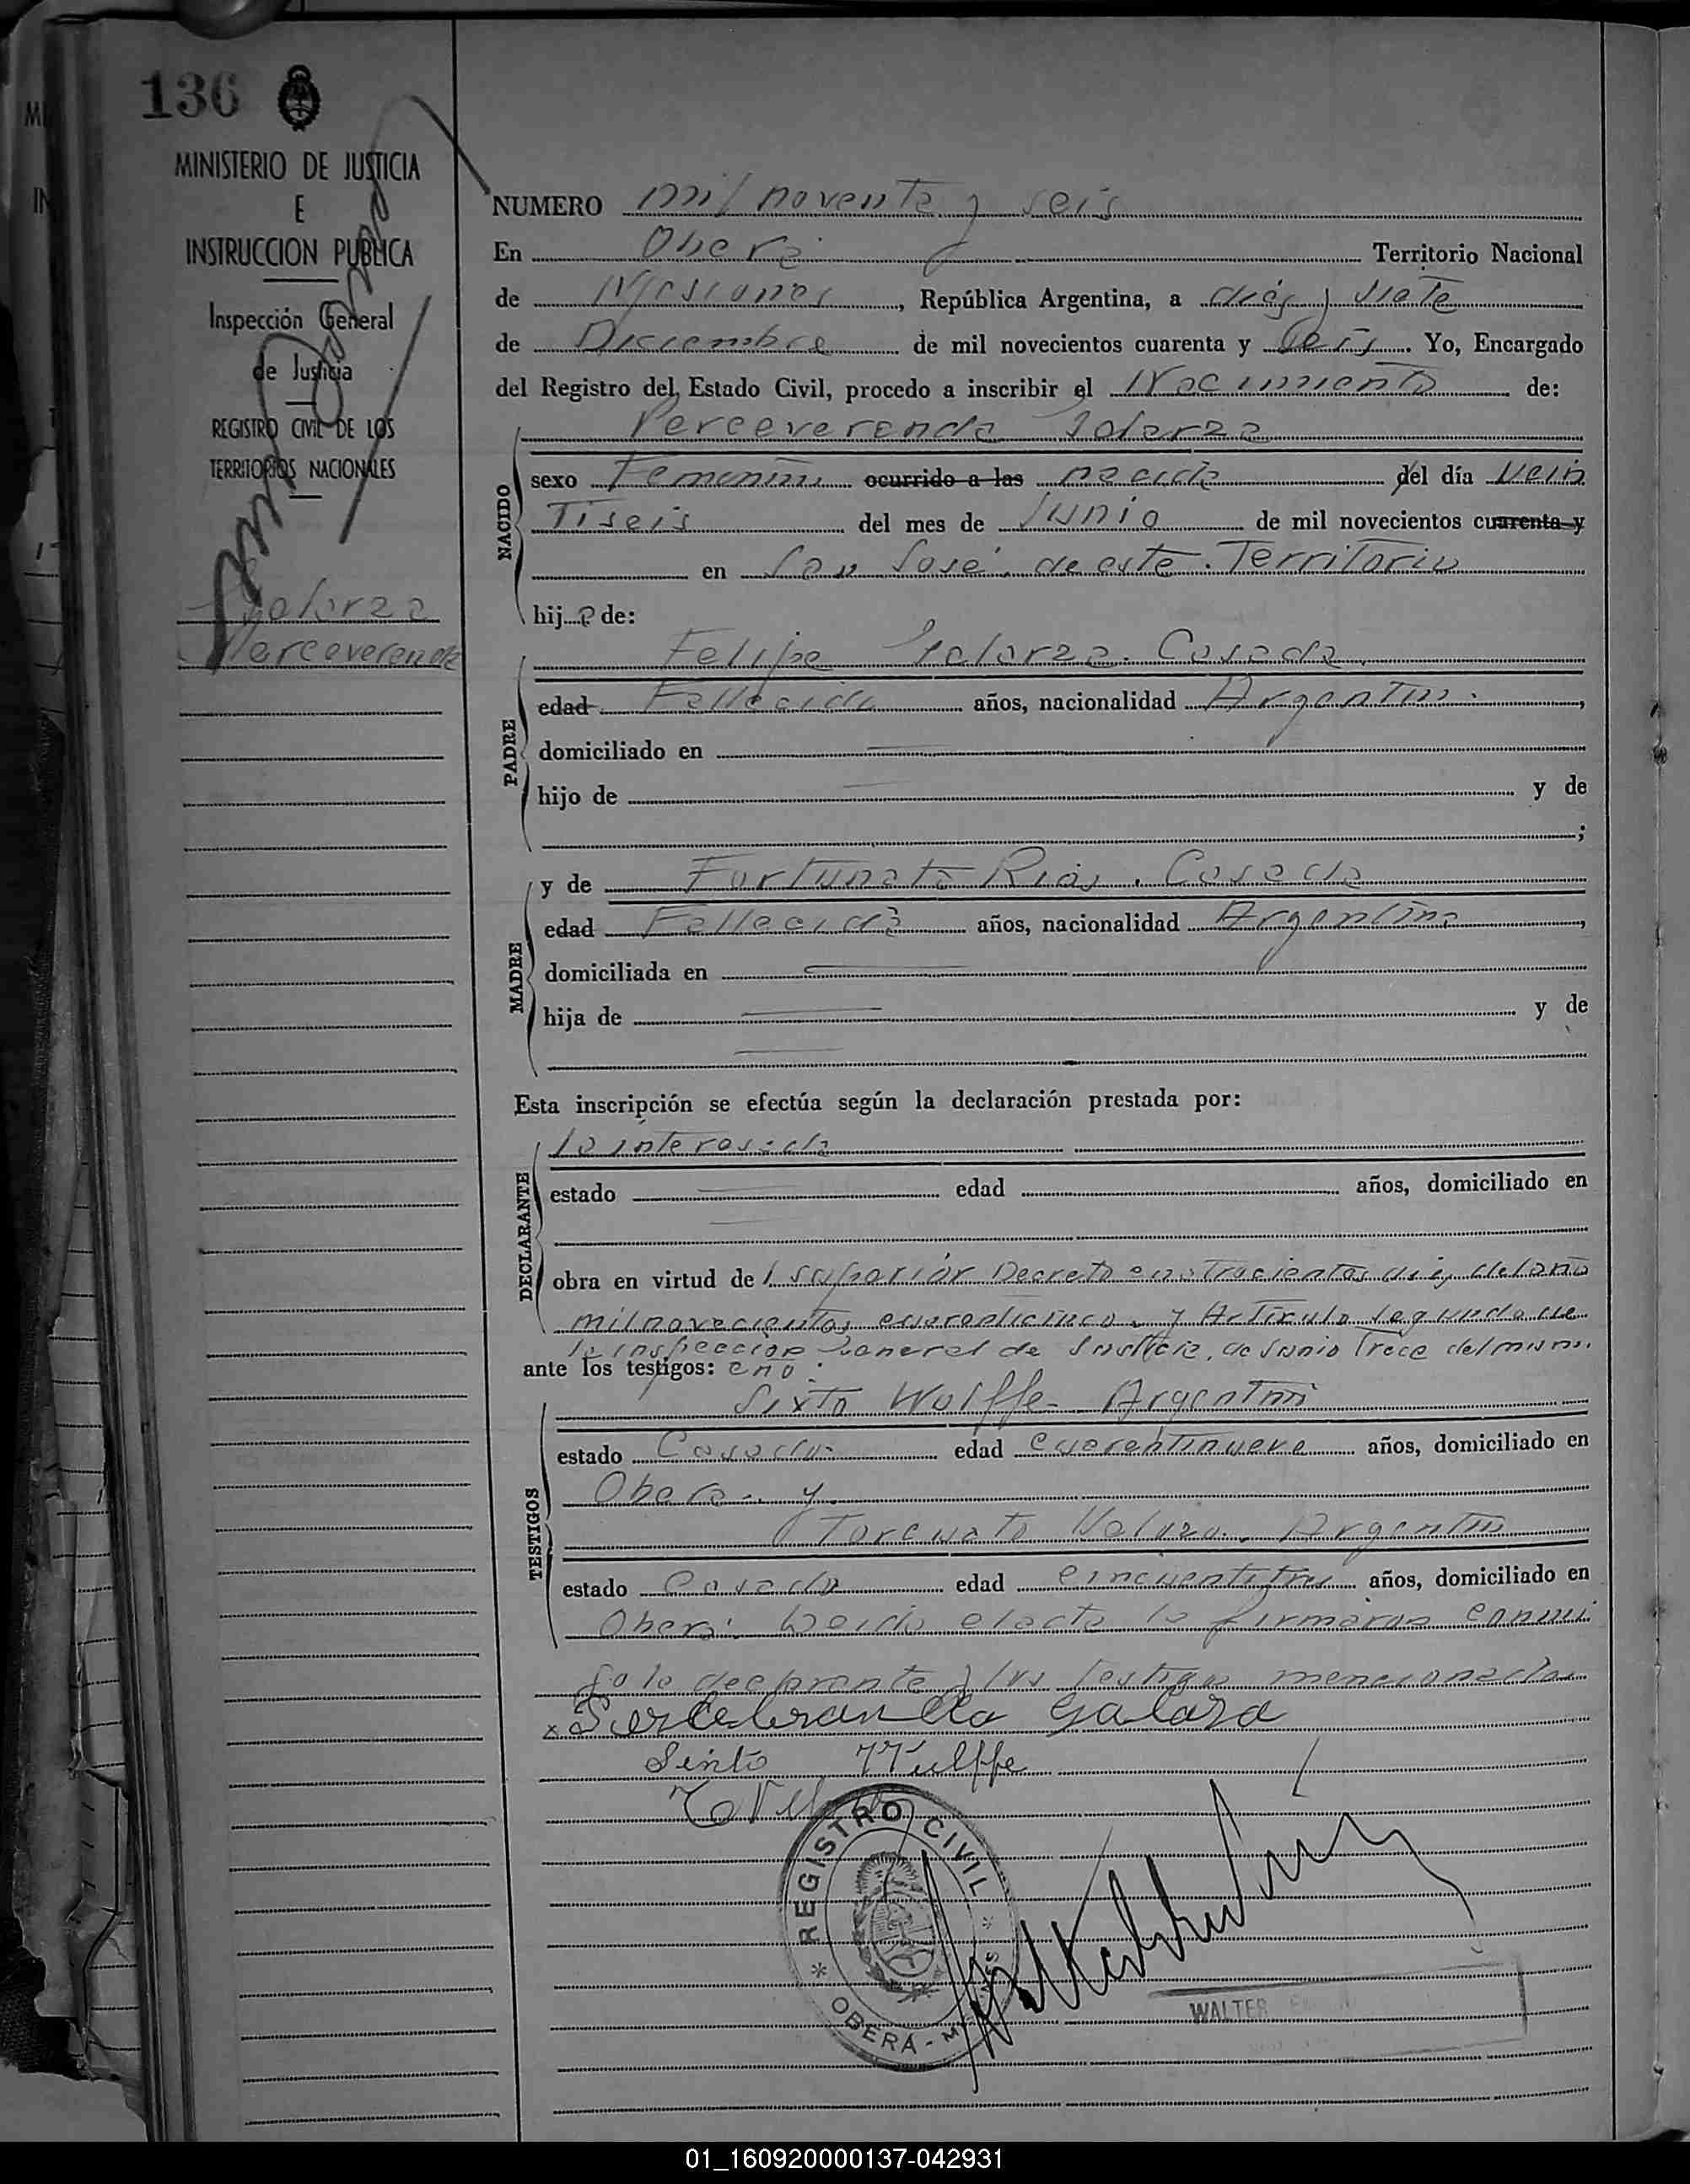 136
MINISTERIO DE JUSTICIA
E
INSTRUCCION PUBLICA
Inspección General
de Justicia
REGISTRO CIVIL DE LOS
TERRITORIOS NACIONALES
Galarza
Perceverenda
NUMERO mil noventa y seis
En Oberá Territorio Nacional
de Misiones, República Argentina, a dies y siete
de Diciembre de mil novecientos cuarenta y seis. Yo, Encargado
del Registro del Estado Civil, procedo a inscribir el Nacimiento de:
Perceverenda Galarza
NACIDO
sexo Femenino ocurrido a las nacida del día vein
tiseis del mes de Junio de mil novecientos cuarenta y
en San José de este Territorio
hija de:
PADRE
Felipe Galarza. Casado.
edad Fallecido años, nacionalidad Argentino.
domiciliado en
hijo de y de
;
MADRE
y de Fortunata Rios. Casada
edad Fallecida años, nacionalidad Argentina,
domiciliada en
hija de y de
Esta inscripción se efectúa según la declaración prestada por:
DECLARANTE
la interesada
estado edad años, domiciliado en
obra en virtud del superior Decreto del año
mil novecientos cuarenticinco y Artículo segundo de
la inspección General de Justicia, de Junio trece del mismo
ante los testigos: año.
TESTIGOS
Sixto Wulffe. Argentino
estado Casado edad cuarentinueve años, domiciliado en
Oberá y
Torcuato Argentino
estado Casado edad cincuentitres años, domiciliado en
Oberá. Leida el acta la firmaron conmi
go la declarante y los testigos mencionados
x Galarza
Sixto Wulffe
REGISTRO CIVIL
OBERÁ - MISIONES
WALTER
01_160920000137-042931